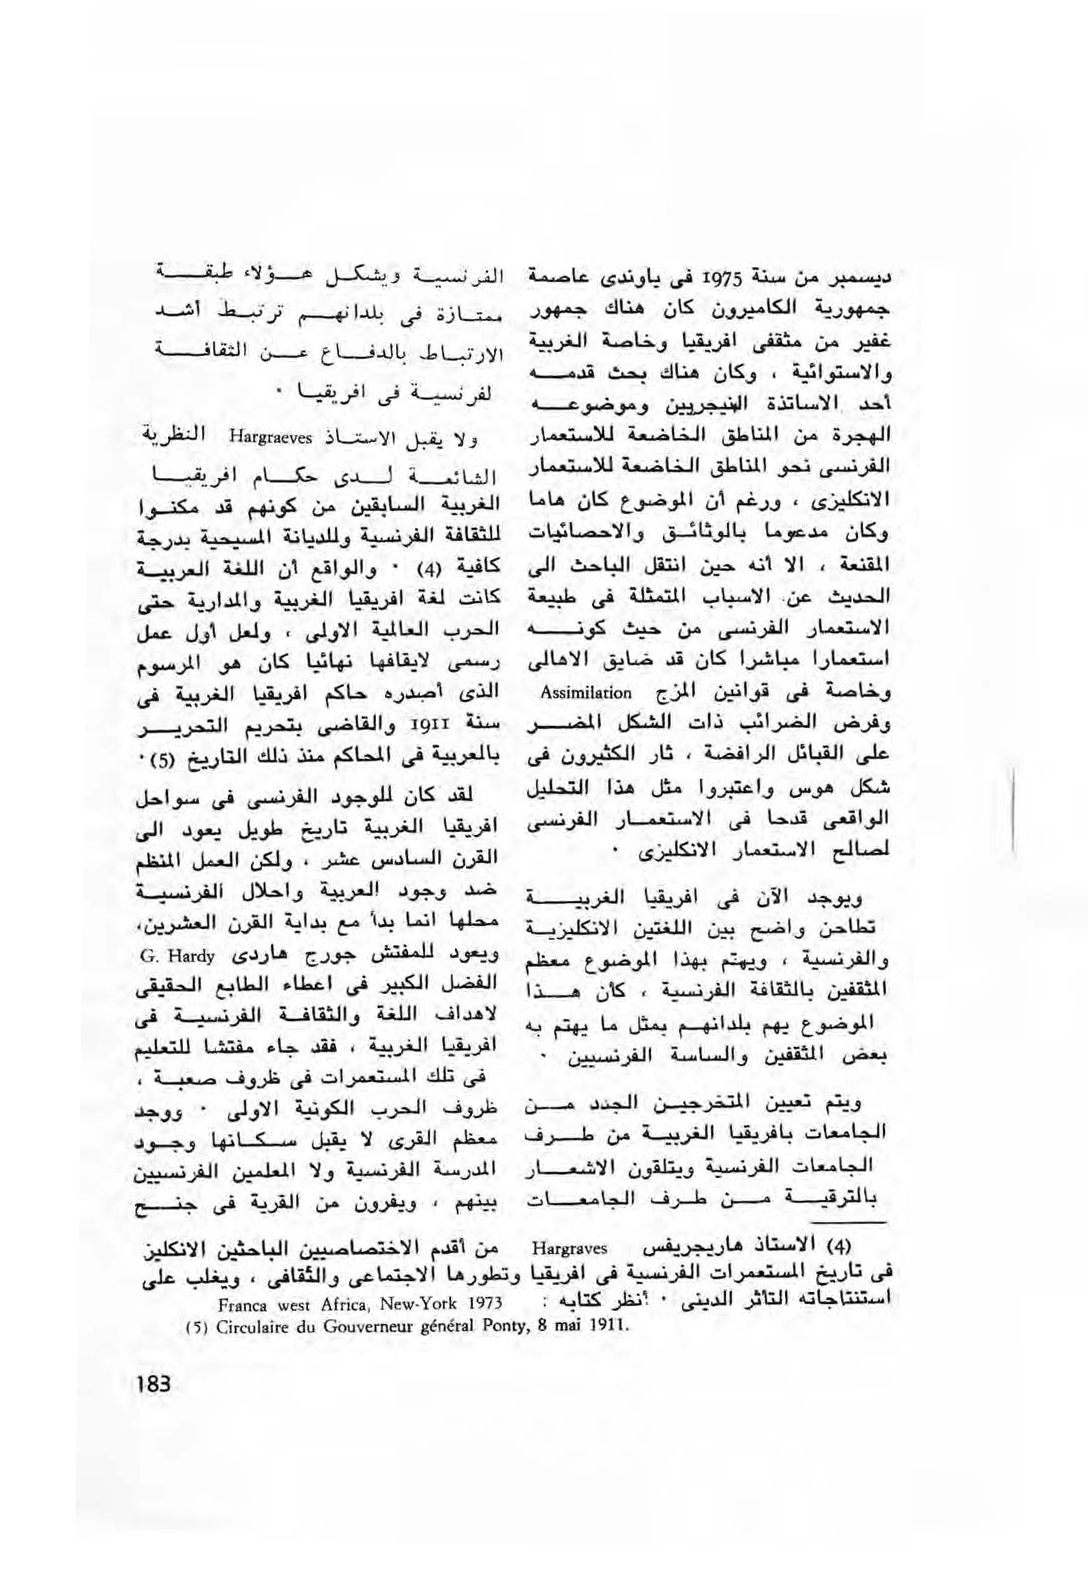 ديسمبر من سنة 1975 فى ياوندى عاصمة
جمهورية الكاميرون كان هناك جمهور
غفير من مثقفى افريقيا وخاصة الغربية
والاستوائية ، وكان هناك بحث قدمه
أحد الاساتذة النيجريين وموضوعه
الهجرة من المناطق الخاضعة للاستعمار
الفرنسى نحو المناطق الخاضعة للاستعمار
الانكليزى ، ورغم أن الموضوع كان هاما
وكان مدعوما بالوثائق والاحصائيات
المقنعة ، الا أنه حين انتقل الباحث الى
الحديث عن الاسباب المتمثلة فى طبيعة
الاستعمار الفرنسى من حيث كونه
استعمارا مباشرا كان قد ضايق الاهالى
وخاصة فى قوانين المزج Assimilation
وفرض الضرائب ذات الشكل المضر
على القبائل الرافضة ، ثار الكثيرون فى
شكل هوس واعتبروا مثل هذا التحليل
الواقعى قدحا فى الاستعمار الفرنسى
لصالح الاستعمار الانكليزى .
ويوجد الآن فى افريقيا الغربية
تطاحن واضح بين اللغتين الانكليزية
والفرنسية ، ويهتم بهذا الموضوع معظم
المثقفين بالثقافة الفرنسية ، كأن هذا
الموضوع يهم بلدانهم بمثل ما يهتم به
بعض المثقفين والساسة الفرنسيين .
ويتم تعيين المتخرجين الجدد من
الجامعات بافريقيا الغربية من طرف
الجامعات الفرنسية ويتلقون الاشعار
بالترقية من طرف الجامعات
الفرنسية ويشكل هؤلاء طبقة
ممتازة فى بلدانهم ترتبط أشد
الارتباط بالدفاع عن الثقافة
لفرنسية فى افريقيا .
ولا يقبل الاستاذ Hargraeves النظرية
الشائعة لدى حكام افريقيا
الغربية السابقين من كونهم قد مكنوا
للثقافة الفرنسية وللديانة المسيحية بدرجة
كافية (4) . والواقع أن اللغة العربية
كانت لغة افريقيا الغربية والمدارية حتى
الحرب العالمية الاولى ، ولعل أول عمل
رسمى لايقافها نهائيا كان هو المرسوم
الذى أصدره حاكم افريقيا الغربية فى
سنة 1911 والقاضى بتحريم التحرير
بالعربية فى المحاكم منذ ذلك التاريخ (5) .
لقد كان للوجود الفرنسى فى سواحل
افريقيا الغربية تاريخ طويل يعود الى
القرن السادس عشر ، ولكن العمل المنظم
ضد وجود العربية واحلال الفرنسية
محلها انما بدأ مع بداية القرن العشرين،
ويعود للمفتش جورج هاردى G. Hardy
الفضل الكبير فى اعطاء الطابع الحقيقى
لاهداف اللغة والثقافة الفرنسية فى
افريقيا الغربية ، فقد جاء مفتشا للتعليم
فى تلك المستعمرات فى ظروف صعبة ،
ظروف الحرب الكونية الاولى . ووجد
معظم القرى لا يقبل سكانها وجود
المدرسة الفرنسية ولا المعلمين الفرنسيين
بينهم ، ويفرون من القرية فى جنح
(4) الاستاذ هاريجريفس Hargraves من أقدم الاختصاصيين الباحثين الانكليز
فى تاريخ المستعمرات الفرنسية فى افريقيا وتطورها الاجتماعى والثقافى ، ويغلب على
استنتاجاته التأثر الدينى . أنظر كتابه : Franca west Africa, New-York 1973
(5) Circulaire du Gouverneur général Ponty, 8 mai 1911.
183